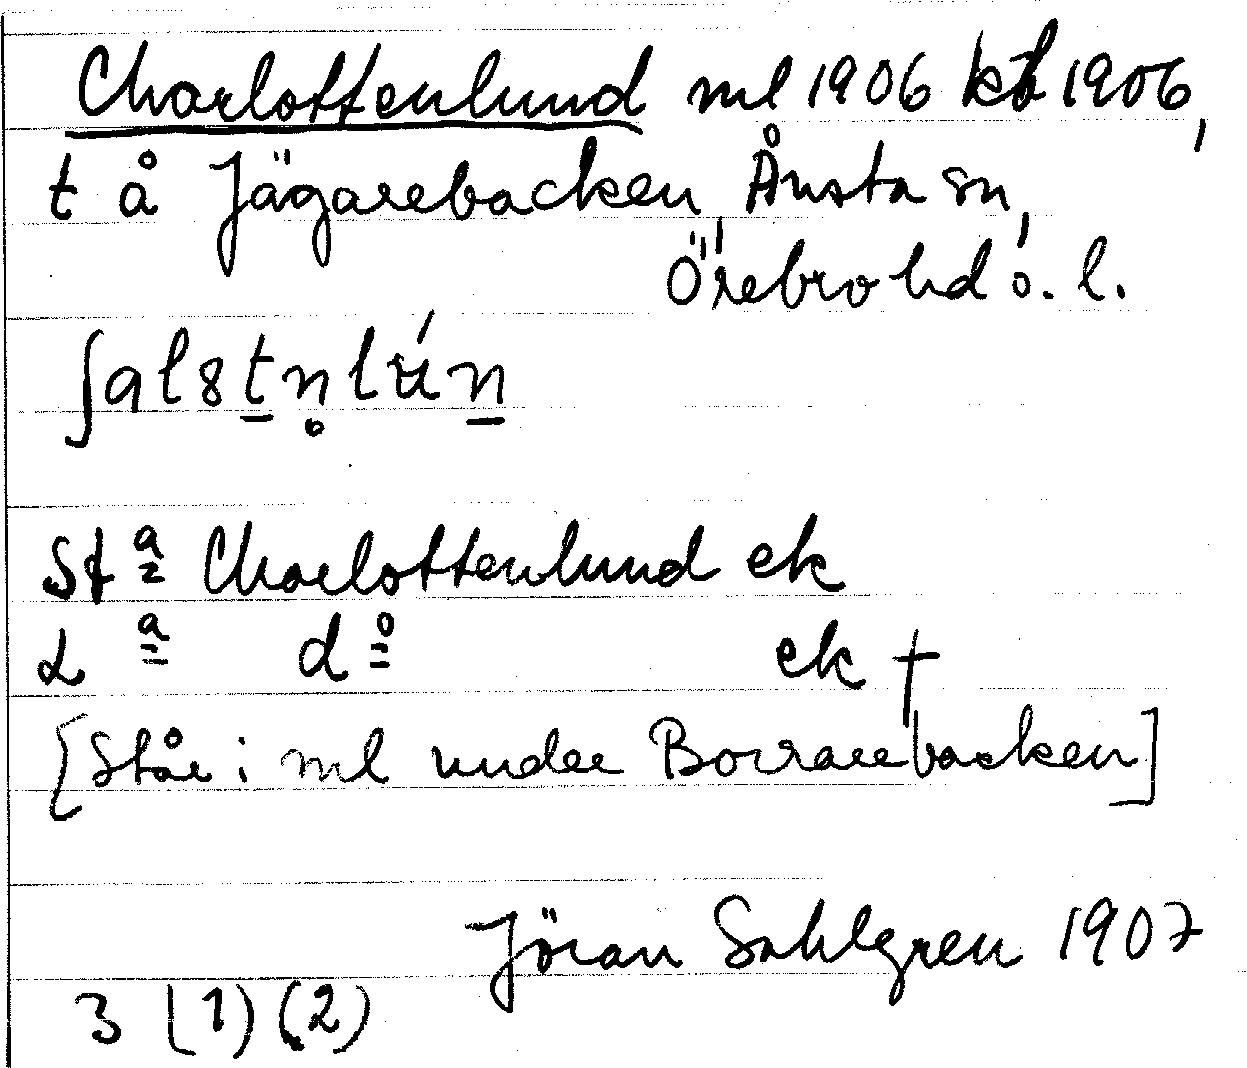 Charlottenlund ml 1906 kb 1906,
t å Jägarebacken, Ånsta sn,
Örebro hd ö. l.
ʃalstn̥lún
St a Charlottenlund ek
L a d o ek †
[Står i ml under Borrarebacken]
Jöran Sahlgren 1907
3 (1) (2)